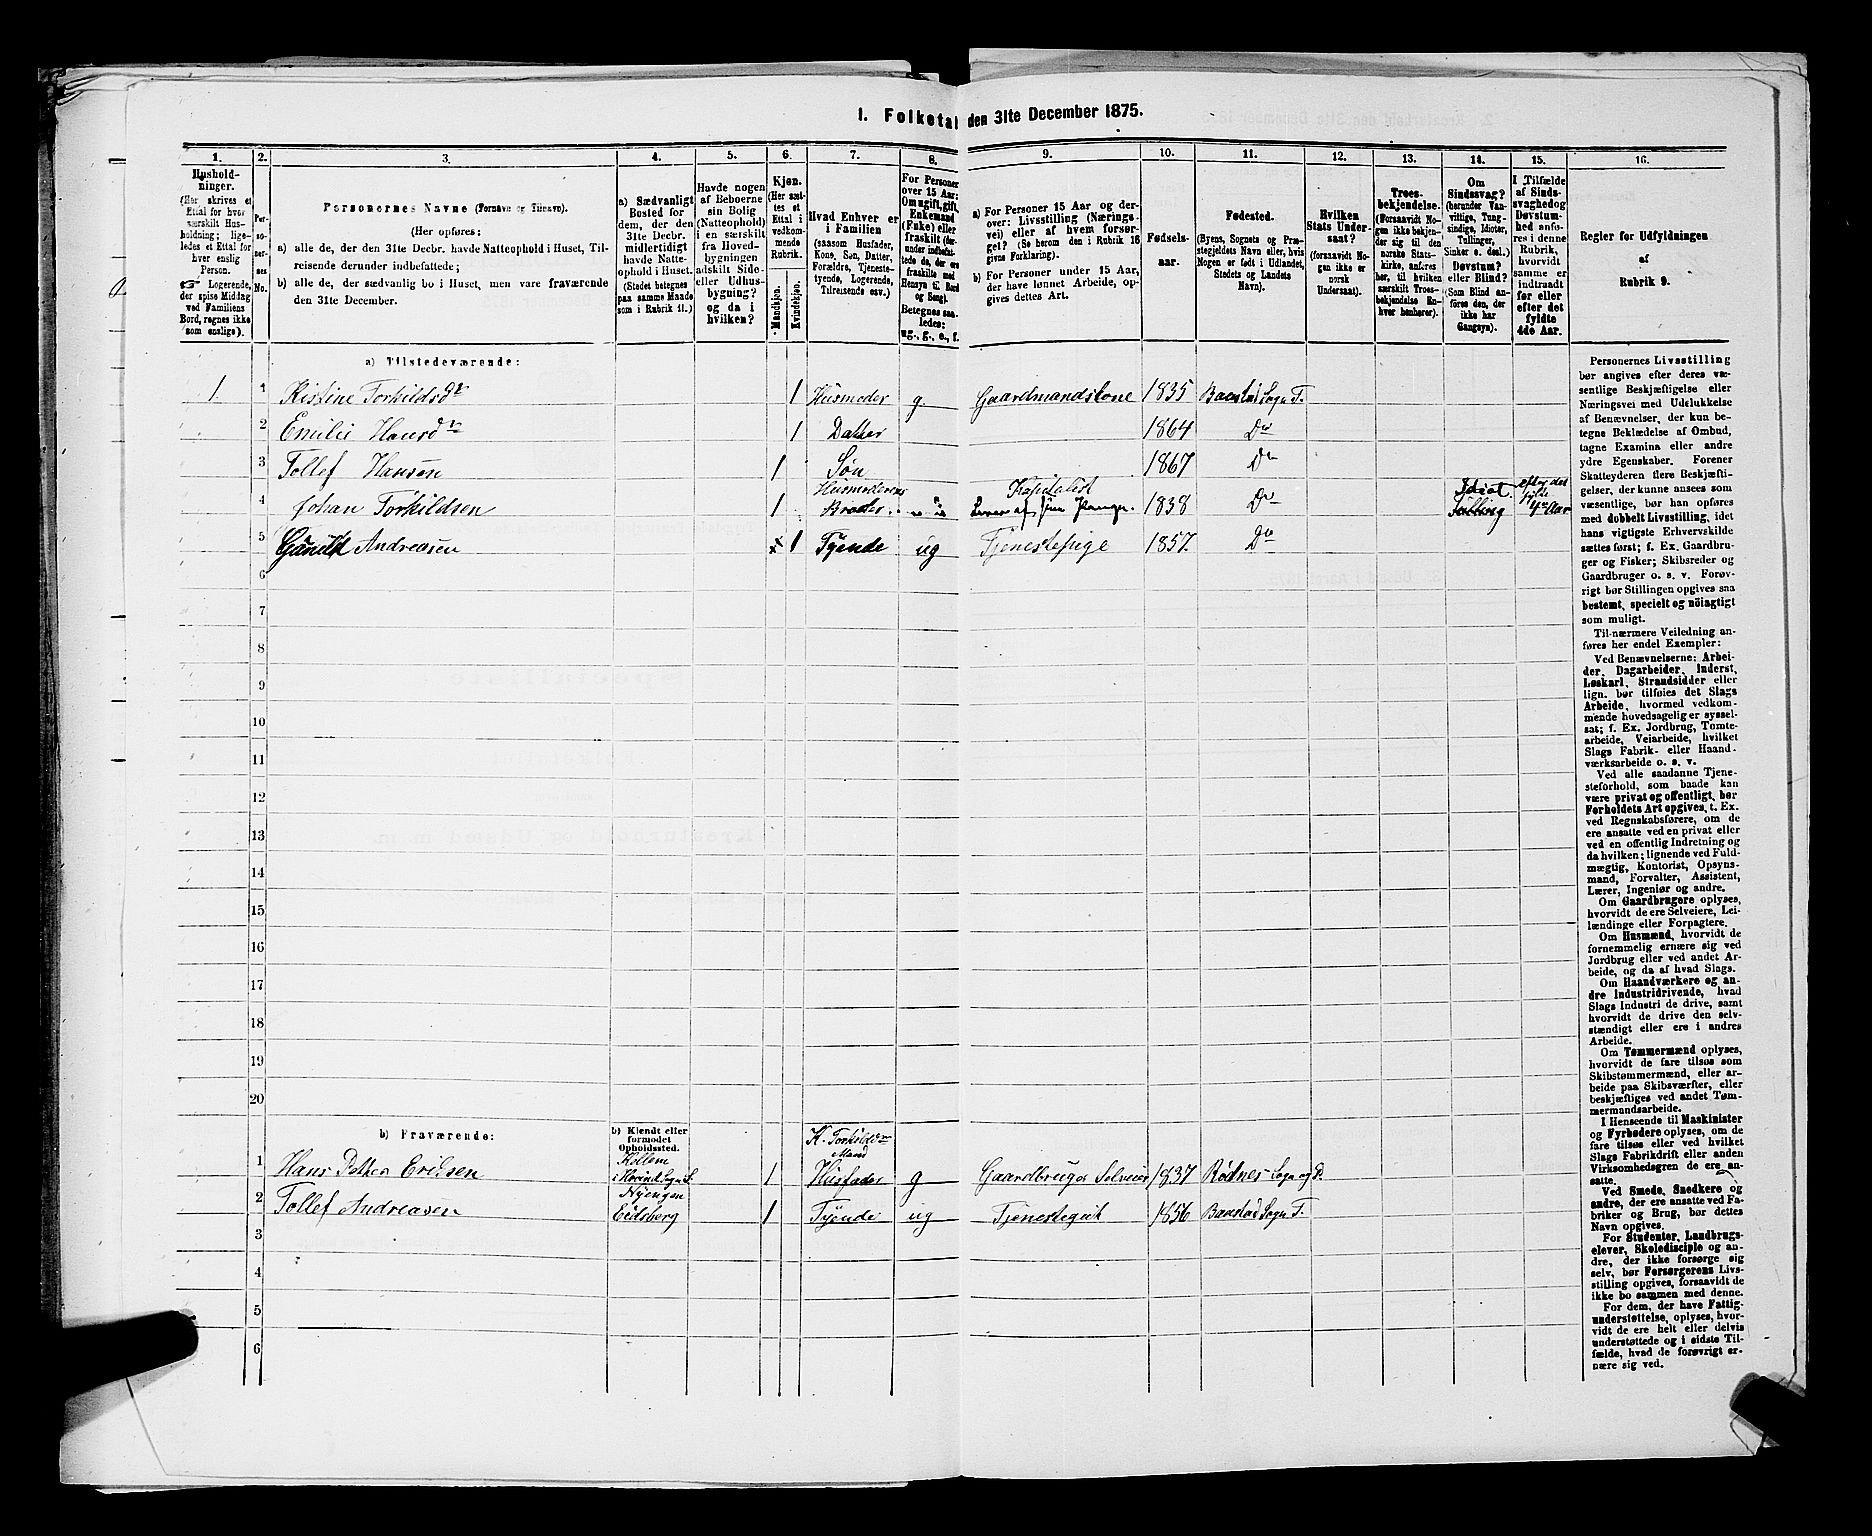 1. Folketal den 31te December 1875.
1. 2. 3. 4. 5. 6. 7. 8. 9. 10. 11. 12. 13. 14. 15. 16.
Hushold-
ninger.
(Her skrives et
Ettal for hver
særskilt Hus-
holdning; lige-
ledes et Ettal for
hver enslig
Person.
☞ Logerende,
der spise Middag
ved Familiens
Bord, regnes ikke
som enslige).
Per-
so-
ner-
nes
No.
Personernes Navne (Fornavn og Tilnavn).
(Her opføres:
a) alle de, der den 31te Decbr. havde Natteophold i Huset, Til-
reisende derunder indbefattede;
b) alle de, der sædvanlig bo i Huset, men vare fraværende
den 31te December.
a) Sædvanligt
Bosted for
dem, der den
31te Decbr.
midlertidigt
havde Natte-
ophold i Huset.
(Stedet betegnes
paa samme Maade
som i Rubrik 11.)
Havde nogen
af Beboerne
sin Bolig
(Natteophold)
i en særskilt
fra Hoved-
bygningen
adskilt Side-
eller Udhus-
bygning?
og da i
hvilken?
Kjøn.
(Her sæt-
tes et
Ettal i
vedkom-
mende
Rubrik.
Mandkjøn.
Kvindekjøn.
Hvad Enhver er
i Familien
(saasom Husfader,
Kone, Søn, Datter,
Forældre, Tjeneste-
tyende, Logerende,
Tilreisende osv.)
For Personer
over 15 Aar:
Om ugift, gift,
Enkemand
(Enke) eller
fraskilt (der-
under indbefat-
tede de, der ere
fraskilte med
Hensyn til Bord
og Seng).
Betegnes saa-
ledes:
ug., g., e., f.
a) For Personer 15 Aar og der-
over: Livsstilling (Nærings-
vei) eller af hvem forsør-
get? (Se herom den i Rubrik 16
givne Forklaring).
b) For Personer under 15 Aar,
der have lønnet Arbeide, op-
gives dettes Art.
Fødsels-
aar.
Fødested.
(Byens, Sognets og Præ-
stegjeldets Navn eller, hvis
Nogen er født i Udlandet,
Stedets og Landets
Navn).
Hvilken
Stats Under-
saat?
(forsaavidt No-
gen ikke er
norsk
Undersaat).
Troes-
bekjendelse.
(Forsaavidt No-
gen ikke bekjen-
der sig til den
norske Stats-
kirke, anføres
her, til hvilken
særskilt Troes-
bekjendelse En-
hver henhører).
Om
Sindssvag?
(herunder Van-
vittige, Tung-
sindige, Idioter,
Tullinger,
Sinker o. desl.).
Døvstum?
eller Blind?
(Som Blind an-
føres den, der
ikke har
Gangsyn).
I Tilfælde
af Sinds-
svaghed og
Døvstum-
hed anfø-
res i denne
Rubrik,
hvorvidt
samme er
indtraadt
før eller
efter det
fyldte
4de Aar.
Regler for Udfyldningen
af
Rubrik 9.
a) Tilstedeværende:
1 1 Kristine Torkildsdr 1 Husmoder g. Gaardmandskone 1835 Baastad Sogn T.
2 Emilie Hansdr 1 Datter 1864 Do
3 Tollef Hansen 1 Søn 1867 Do
4 Johan Torkildsen 1 Husmoderens Broder ug Kapitalist Lever af sine Penge. 1838 Do Idiot. Tulling efter det fylde 4de Aar
5 Gunild Andreasen 1 Tyende ug Tjenestepige 1857 Do
6
7
8
9
10
11
12
13
14
15
16
17
18
19
20
b) Fraværende:
b) Kjendt eller
formodet
Opholdssted.
K. Torkildsens
Mand
1 Hans Petter Eriksen i Hovind Sogn 1 Husfader g Gaardbruger Selveier 1837 Rødnes Sogn og P.
2 Tollef Andreasen Eidsberg 1 Tyende ug Tjenestegut 1856 Baastad Sogn T.
3
4
5
6
Personernes Livsstilling
bør angives efter deres væ-
sentlige Beskjæftigelse eller
Næringsvei med Udelukkelse
af Benævnelser, der kun be-
tegne Beklædelse af Ombud,
tagne Examina eller andre
ydre Egenskaber. Forener
Skatteyderen flere Beskjæfti-
gelser, der kunne ansees som
væsentlige, bør han opføres
med dobbelt Livsstilling, idet
hans vigtigste Erhvervskilde
sættes først; f. Ex. Gaardbru-
ger og Fisker; Skibsreder og
Gaardbruger o. s. v. Forøv-
rigt bør Stillingen opgives saa
bestemt, specielt og nöiagtigt
som muligt.
Til nærmere Veiledning an-
føres her endel Exempler:
Ved Benævnelserne: Arbei-
der, Dagarbeider, Inderst,
Løskarl, Strandsidder eller
lign. bør tilføies det Slags
Arbeide, hvormed vedkom-
mende hovedsagelig er syssel-
sat; f. Ex. Jordbrug, Tomte-
arbeide, Veiarbeide, hvilket
Slags Fabrik- eller Haand-
værksarbeide o. s. v.
Ved alle saadanne Tjene-
steforhold, som baade kan
være privat og offentligt, bør
Forholdets Art opgives, t. Ex.
ved Regnskabsførere, om de
ere ansatte ved en privat eller
ved en offentlig Indretning og
da hvilken; lignende ved Fuld-
mægtig, Kontorist, Opsyns-
mand, Forvalter, Assistent,
Lærer, Ingeniør og andre.
Om Gaardbrugere oplyses,
hvorvidt de ere Selveiere, Lei-
lændinge eller Forpagtere.
Om Husmænd, hvorvidt de
fornemmelig ernære sig ved
Jordbrug eller ved andet Ar-
beide, og da af hvad Slags.
Om Haandværkere og an-
dre Industridrivende, hvad
Slags Industri de drive, samt
hvorvidt de drive den selv-
stændigt eller ere i andres
Arbeide.
Om Tømmermænd oplyses,
hvorvidt de fare tilsøs som
Skibstømmermænd, eller ar-
beide paa Skibsværfter, eller
beskjæftiges ved andet Tøm-
mermandsarbeide.
I Henseende til Maskinister
og Fyrbødere oplyses, om de
fare tilsøs eller ved hvilket
Slags Fabrikdrift eller anden
Virksomhedsgren de ere an-
satte.
Ved Smede, Snedkere og
andre, der ere ansatte ved Fa-
briker og Brug, bør dettes
Navn opgives.
For Studenter, Landbrugs-
elever, Skoledisciple og an-
dre, der ikke forsørge sig
selv, bør Forsørgerens Livs-
stilling opgives, forsaavidt de
ikke bo sammen med denne.
For dem, der have Fattig-
understøttelse, oplyses, hvor-
vidt de ere helt eller delvis
understøttede og i sidste Til-
fælde, hvad de forøvrigt er-
nære sig ved.